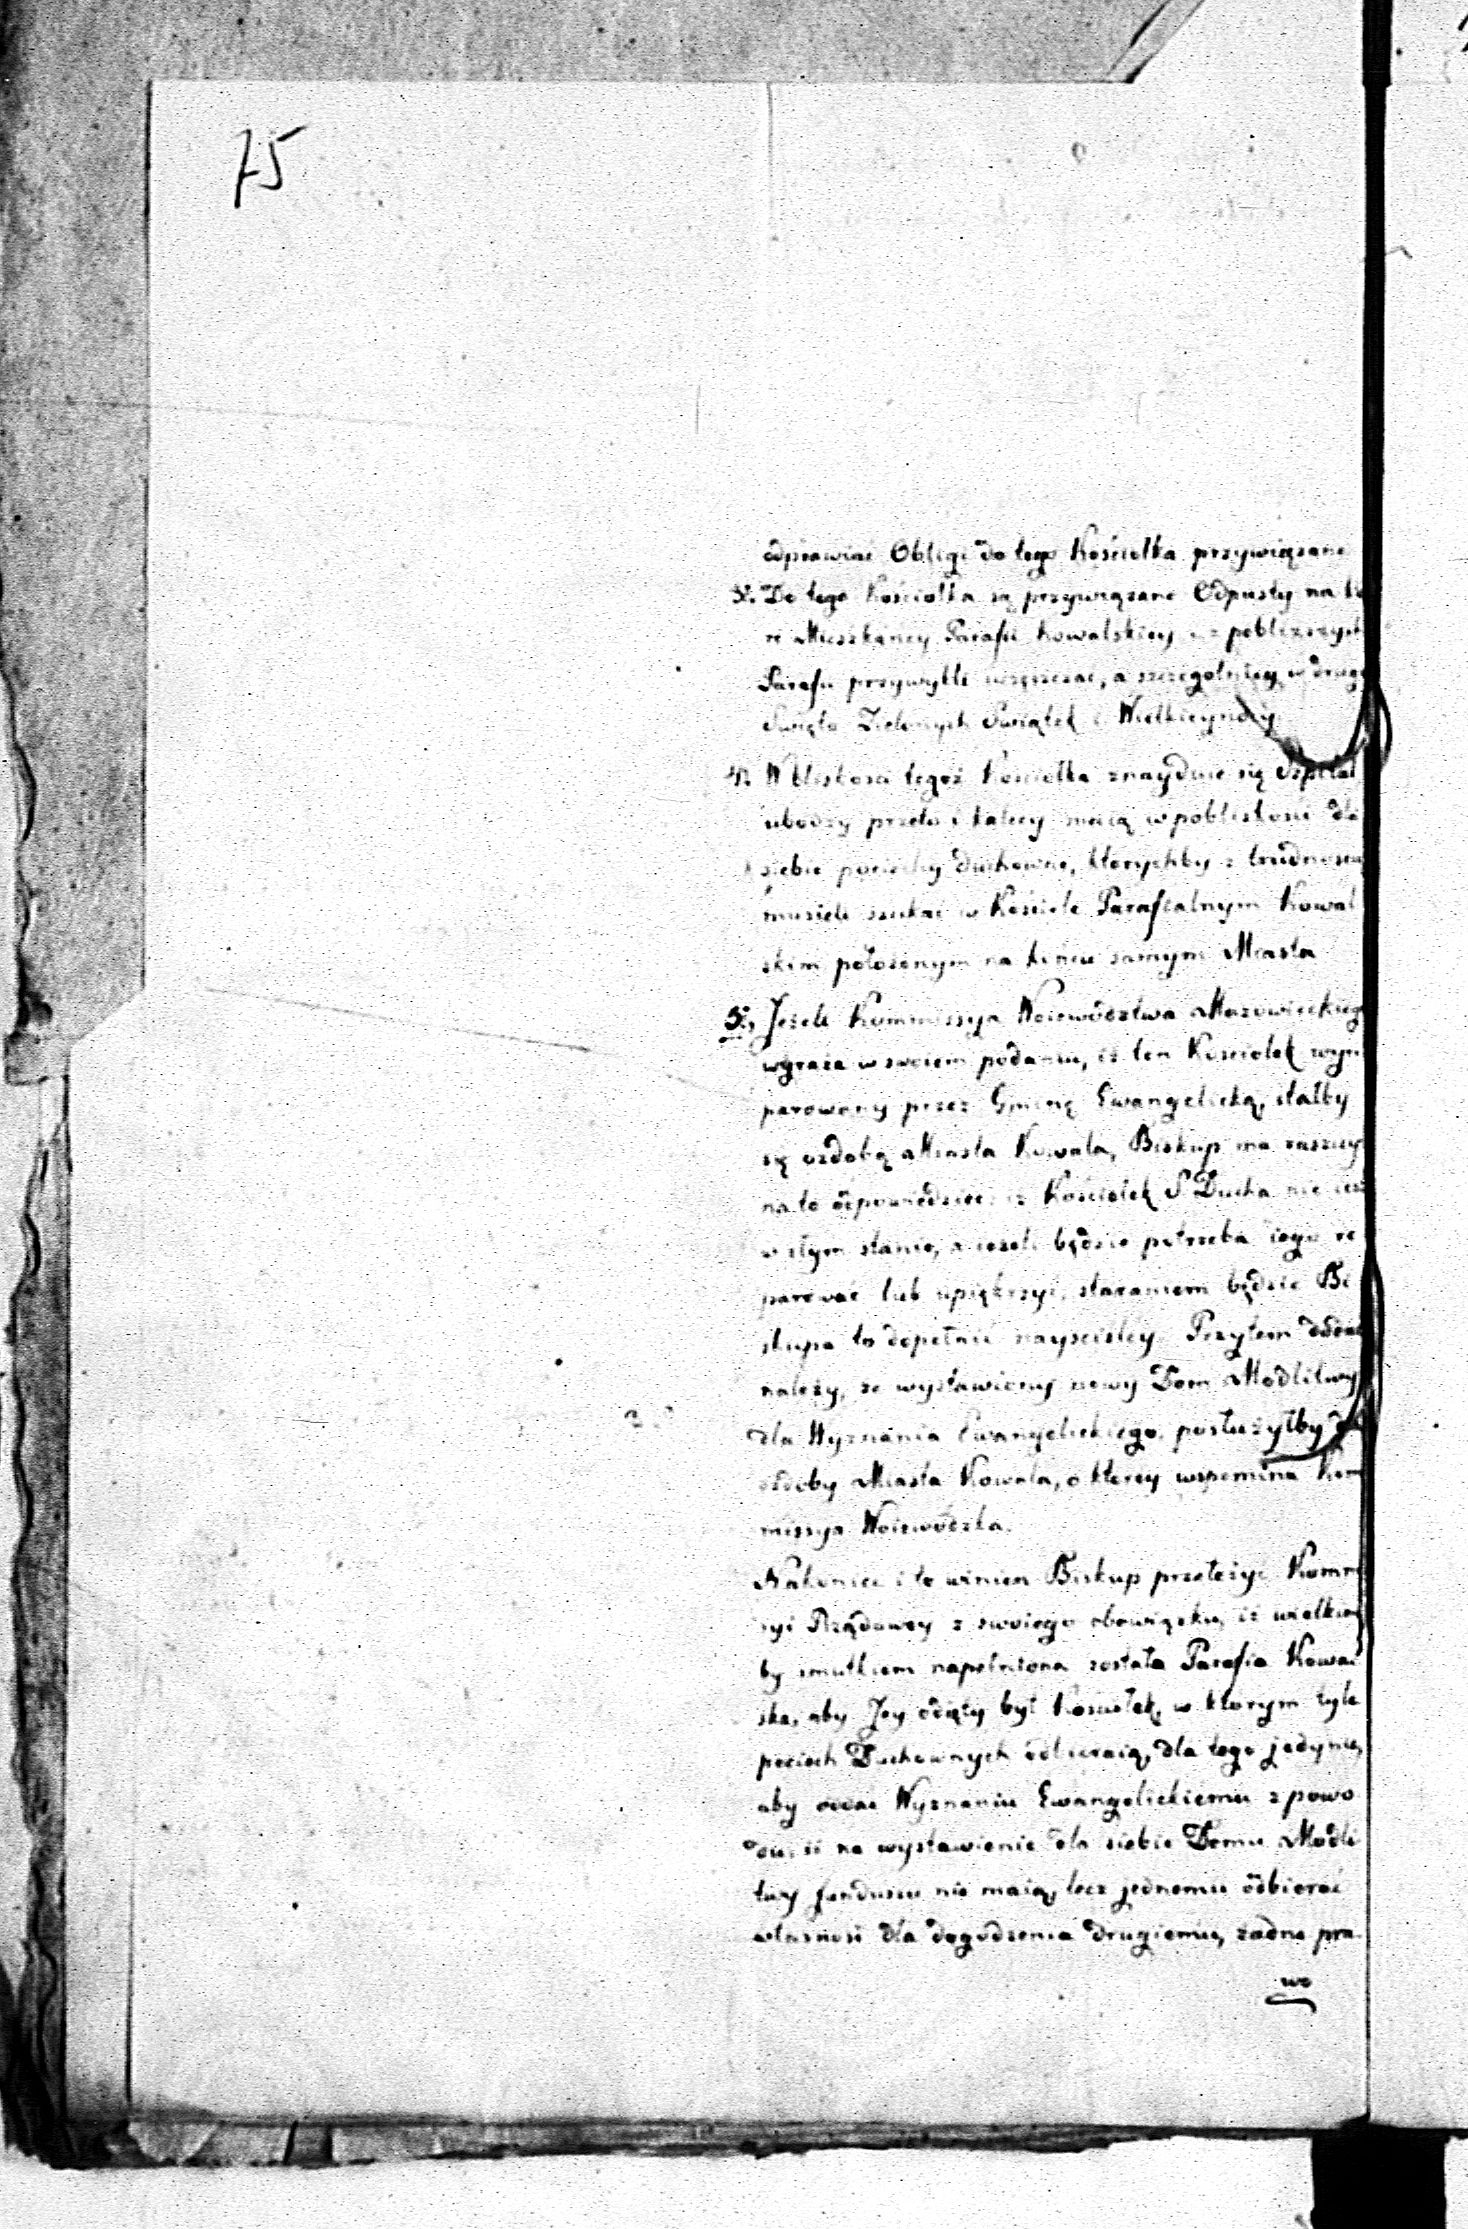 75
odprawiać Obligi do tego Kościołka przywiązane
3. Do tego Kościołka są przywiązane Odpusty na
re Mieszkańcy Parafii Kowalskiey i z pobliższych
Parafii przywykli uczęszczać, a szczegolniey w drugie
Swięto Zielonych Swiątek i Wielkieynocy
4. W bliskosci tegoż Kościołka znayduie się Szpital
ubodzy przeto i kalecy maią w pobliskosci dla
siebie pociechy duchowne, ktorychby z trudnoscią
musieli szukać w Kościele Parafialnym Kowal
skim położonym na końcu samym Miasta
5., Jeżeli Kommissya Woiewództwa Mazowieckiego
wyraża w swoiem podaniu, iż ten Kościołek wyre
parowany przez Gminę Ewangelicką, stałby
się ozdobą Miasta Kowala, Biskup ma zaszczyt
na to odpowiedzieć: iż Kościołek S. Ducha nie iest
w złym stanie, a ieżeli będzie potrzeba iego re
parować lub upiększyć, staraniem będzie Bi
skupa to dopełnić nayściśley. Przytem dodać
należy, że wystawiony nowy Dom Modlitwy
dla Wyznania Ewangelickiego, posłużyłby do
ozdoby Miasta Kowala, o ktorey wspomina Kom
missya Woiewódzka.
Nakoniec i to winien Biskup przełożyć Kommi
syi Rządowey z swoiego obowiązku, iż wielkim
by smutkiem napełniona została Parafia Kowal
ska, aby Jey odięty był Kościołek, w ktorym tyle
pociech Duchownych odbieraią, dla tego jedynie,
aby oddać Wyznaniu Ewangelickiemu z powo
du, iż na wystawienie dla siebie Domu Modli
twy funduszu nie maią, lecz jednemu odbierać
własność dla dogodzenia drugiemu, żadne pra
wo